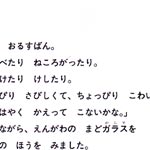 おるすばん。
べたり ねころがったり。
けたり けしたり。
ぴり さびしくて、ちょっぴり こわい
はやく かえって こないかな。」
ながら、えんがわの まどガラスを
の ほうを みました。